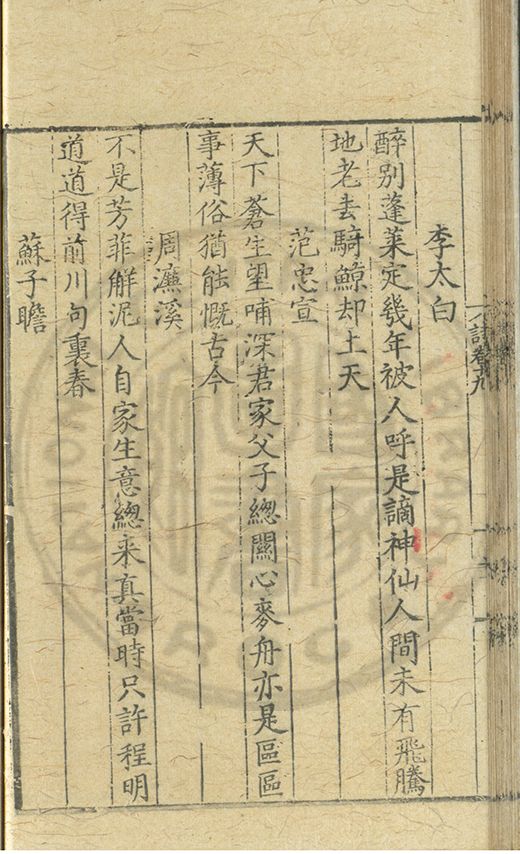 李太白
醉別蓬萊定幾年被人呼是謫神仙人間未有飛騰
地老去騎鯨却上天
范忠宣
天下蒼生望哺深君家父子總關心麥舟亦是區區
事薄俗猶能慨古今
周濂溪
不是芳菲解泥人自家生意總来真當時只許程明
道道得前川句裏春
蘇子瞻